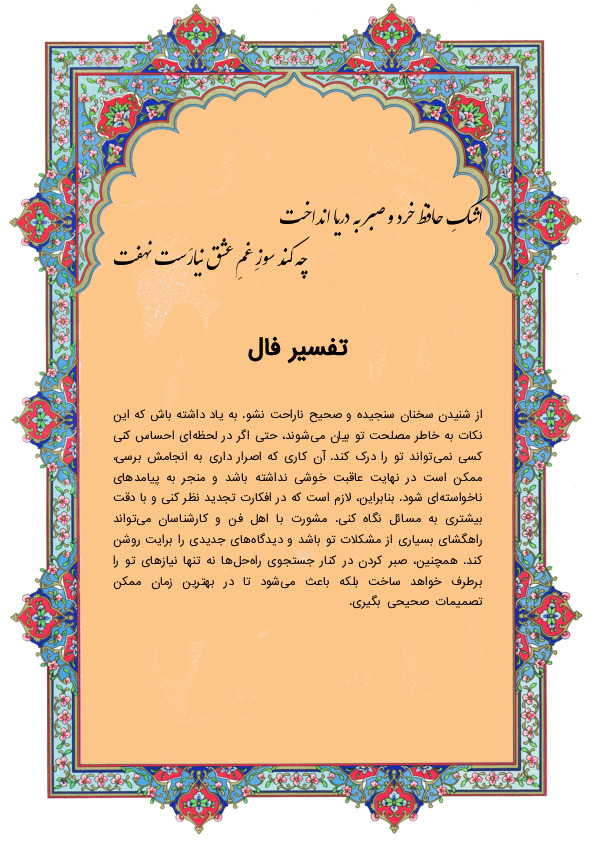 اشکِ حافظ خرد و صبر به دریا انداخت
چه کند سوزِ غمِ عشق نیارَست نهفت
تفسیر فال
از شنیدن سخنان سنجیده و صحیح ناراحت نشو. به یاد داشته باش که این
نکات به خاطر مصلحت تو بیان می‌شوند، حتی اگر در لحظه‌ای احساس کنی
کسی نمی‌تواند تو را درک کند. آن کاری که اصرار داری به انجامش برسی،
ممکن است در نهایت عاقبت خوشی نداشته باشد و منجر به پیامدهای
ناخواسته‌ای شود. بنابراین، لازم است که در افکارت تجدید نظر کنی و با دقت
بیشتری به مسائل نگاه کنی. مشورت با اهل فن و کارشناسان می‌تواند
راهگشای بسیاری از مشکلات تو باشد و دیدگاه‌های جدیدی را برایت روشن
کند. همچنین، صبر کردن در کنار جستجوی راه‌حل‌ها نه تنها نیازهای تو را
برطرف خواهد ساخت بلکه باعث می‌شود تا در بهترین زمان ممکن
تصمیمات صحیحی بگیری.